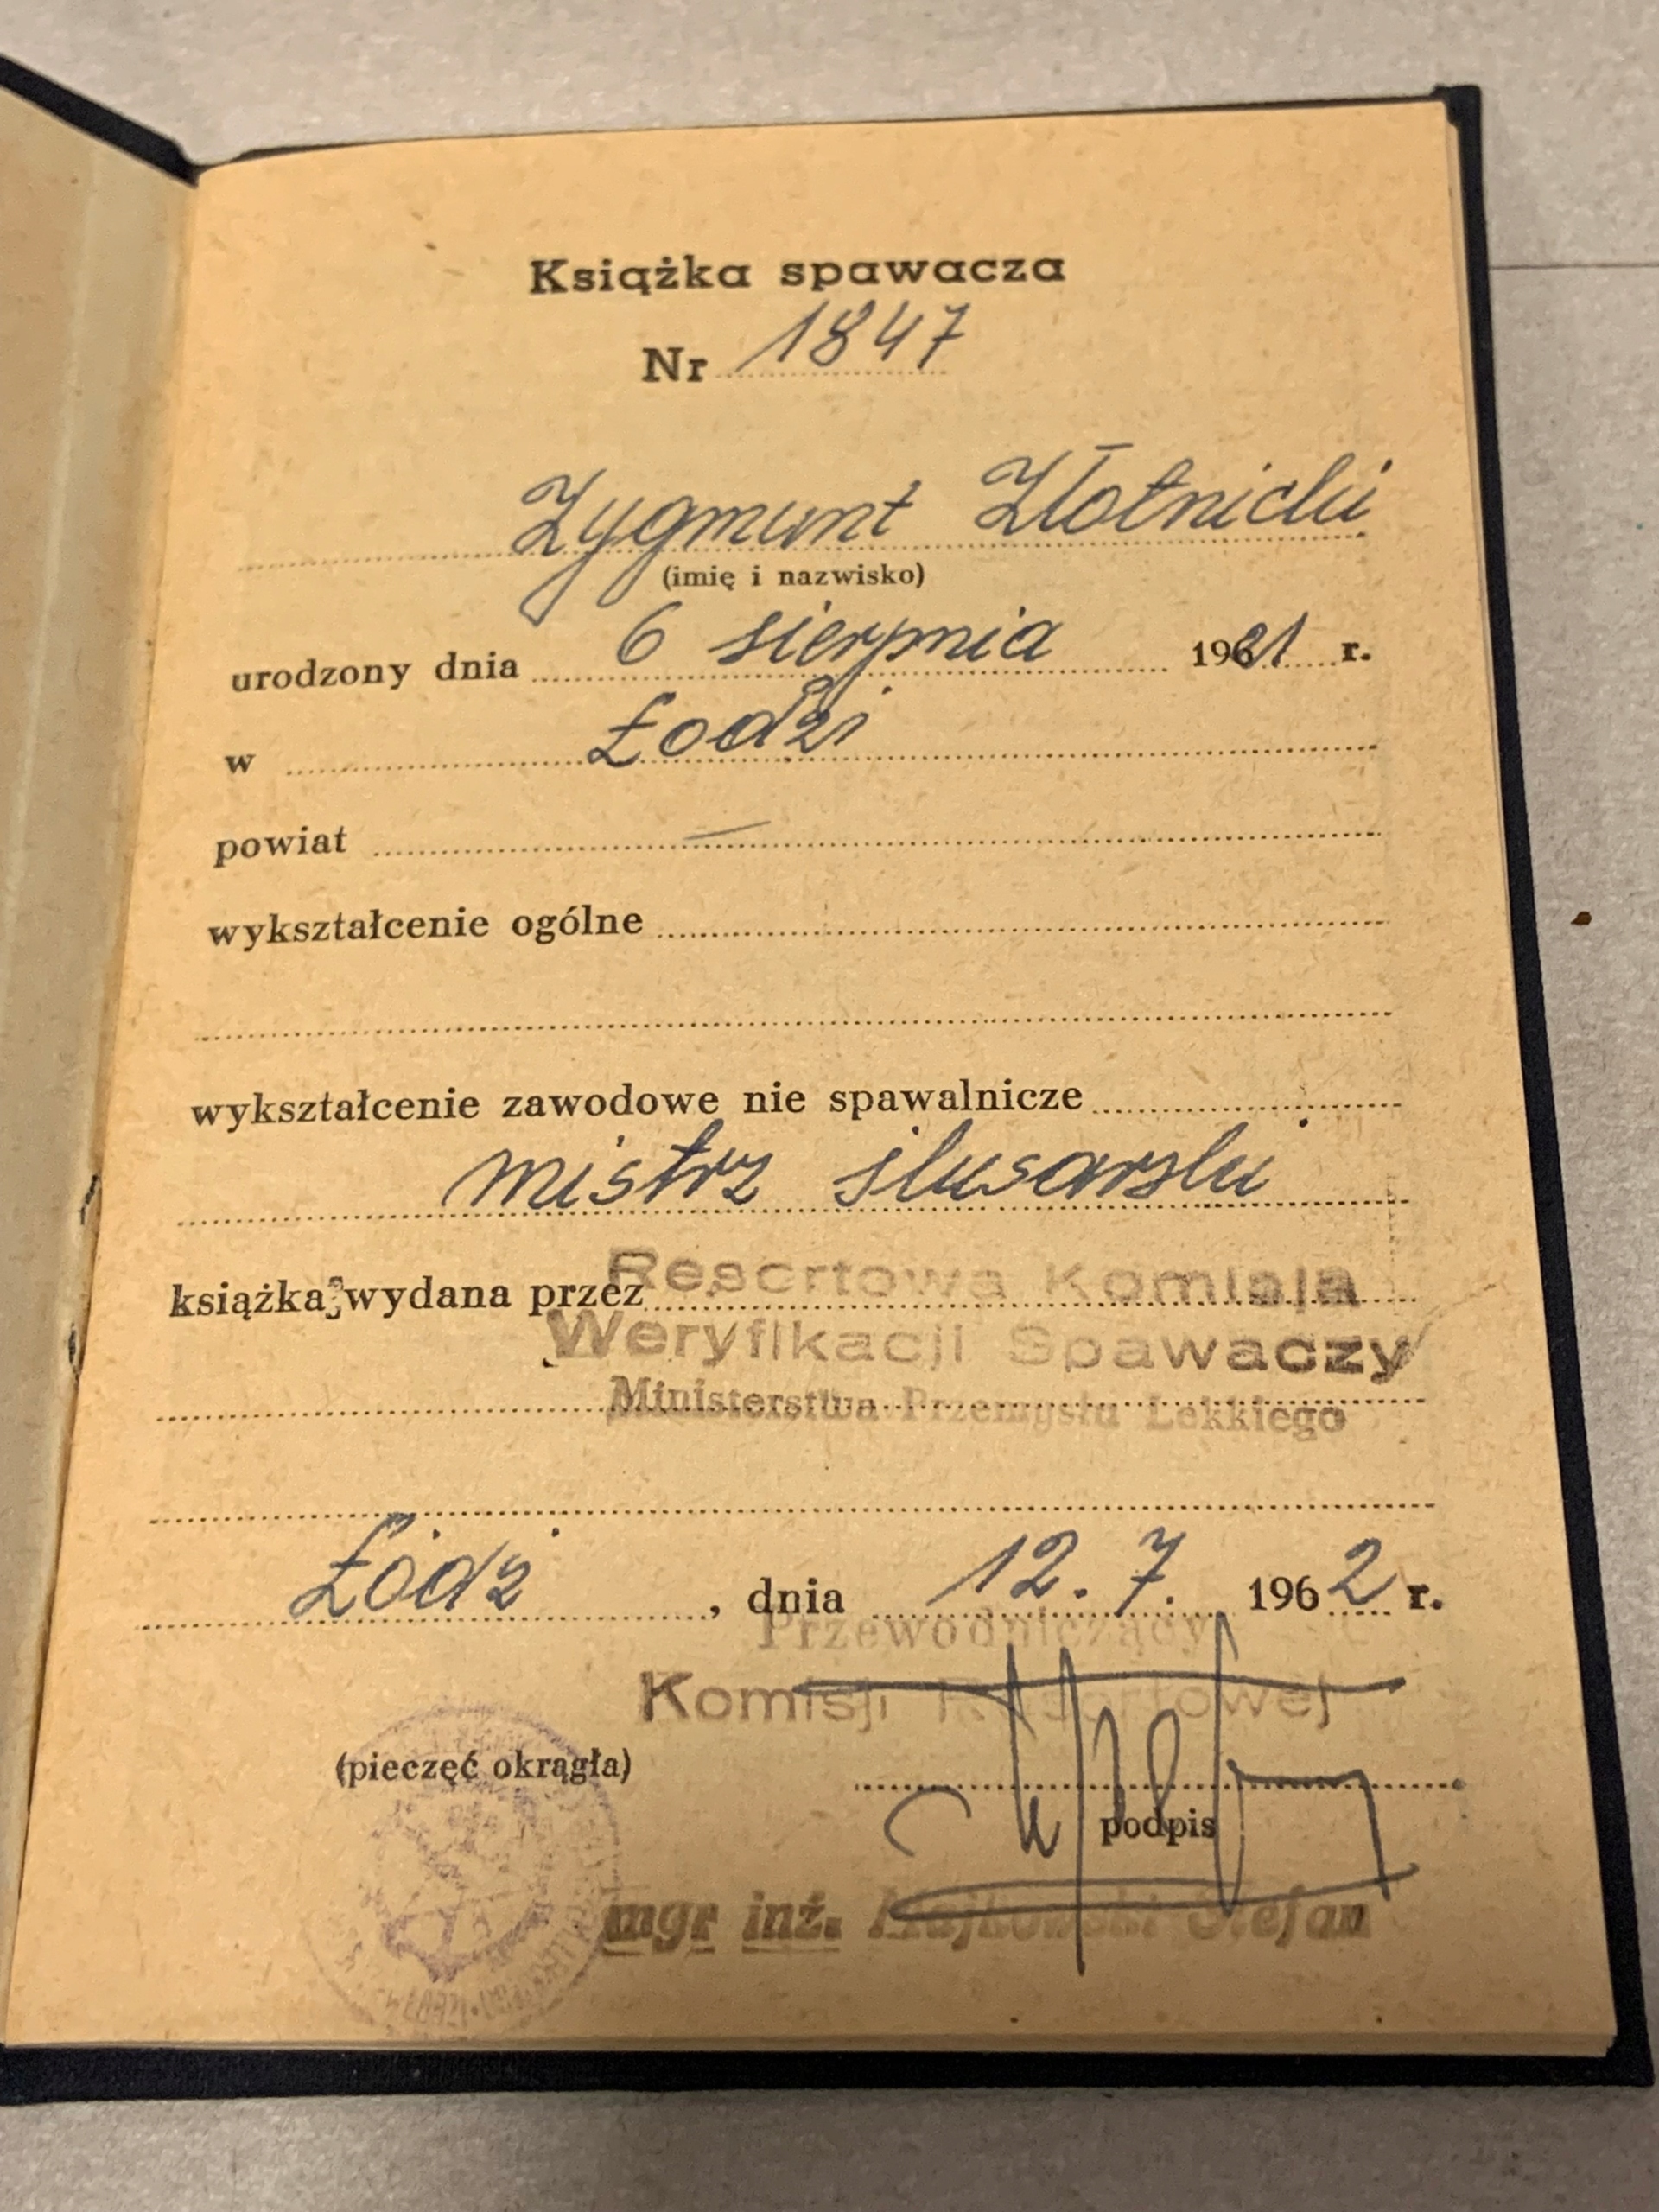 Książka spawacza
Nr 1847
Zygmunt Złotnicki
(imię i nazwisko)
urodzony dnia 6 sierpnia 1901 r.
w Łodzi
powiat —
wykształcenie ogólne
wykształcenie zawodowe nie spawalnicze
mistrz ślusarski
książka wydana przez Resortowa Komisja
Weryfikacji Spawaczy
Ministerstwa Przemysłu Lekkiego
Łódź, dnia 12.7. 1962 r.
Przewodniczący
Komisji Resortowej
(pieczęć okrągła)
podpis
mgr inż. Majkowski Stefan